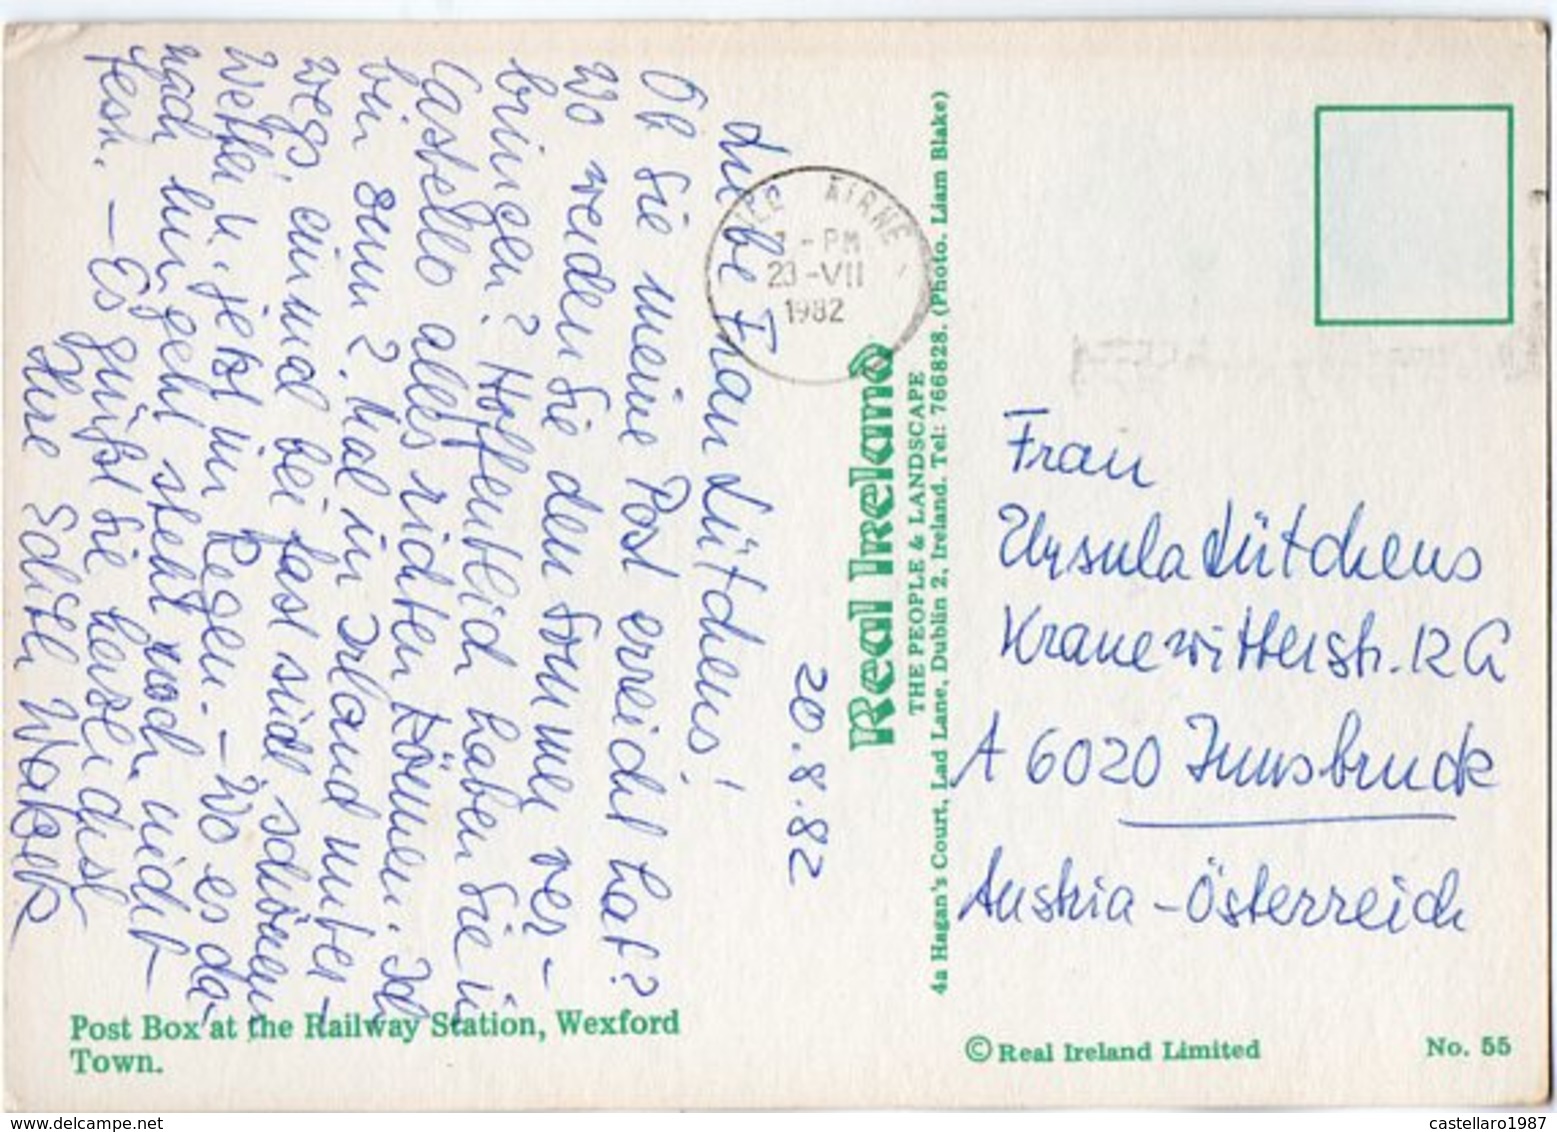 20.8.82
Liebe Frau Lütchens!
Ob Sie meine Post erreicht hat?
Wo werden Sie den Sommer ver-
bringen? Hoffentlich haben Sie in
Castello alles richten können. Ich
bin zum 2. Mal in Irland unter-
wegs, einmal bei fast süd, schönem
Wetter u. jetzt im Regen. – Wo es da-
nach hingeht steht noch nicht
fest. – Es grüßt Sie herzlichst
Ihre Edith
Post Box at the Railway Station, Wexford
Town.
AIRNE
1-PM
23-VII
1982
Real Ireland
THE PEOPLE & LANDSCAPE
4a Hagan's Court, Lad Lane, Dublin 2, Ireland. Tel: 766828. (Photo. Liam Blake)
Frau
Ursula Lütchens
Kranewitterstr. 12 G
A 6020 Innsbruck
Austria – Österreich
© Real Ireland Limited
No. 55
castellaro1987
www.delcampe.net